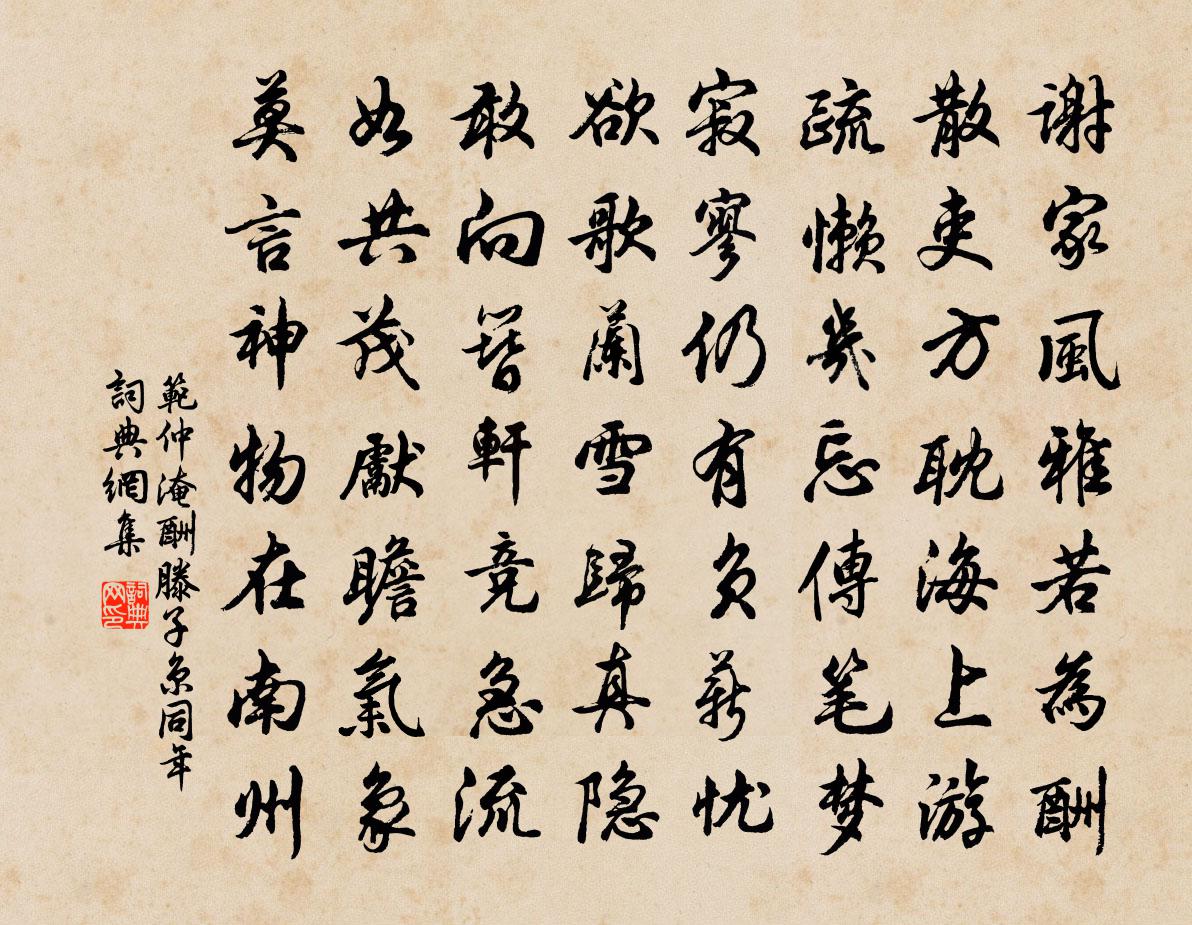 谢家風雅若為酬
散吏方耽海上游
疏懶幾忘傳笔梦
寂寥仍有負薪忧
欲歌蘭雪歸真隐
敢向簪軒竞急流
如共茂獻瞻氣象
莫言神物在南州
範仲淹酬滕子京同年
詞典網集
詞典网印